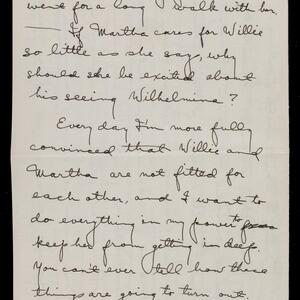 went for a long walk with her.
— If Martha cares for Willie
so little as she say, why
should she be excited about
his seeing Wilhelmina?
Every day I'm more fully
convinced that Willie and
Martha are not fitted for
each other, and I want to
do everything in my power to
keep her from getting in deep.
You can't ever tell how these
things are going to turn out.